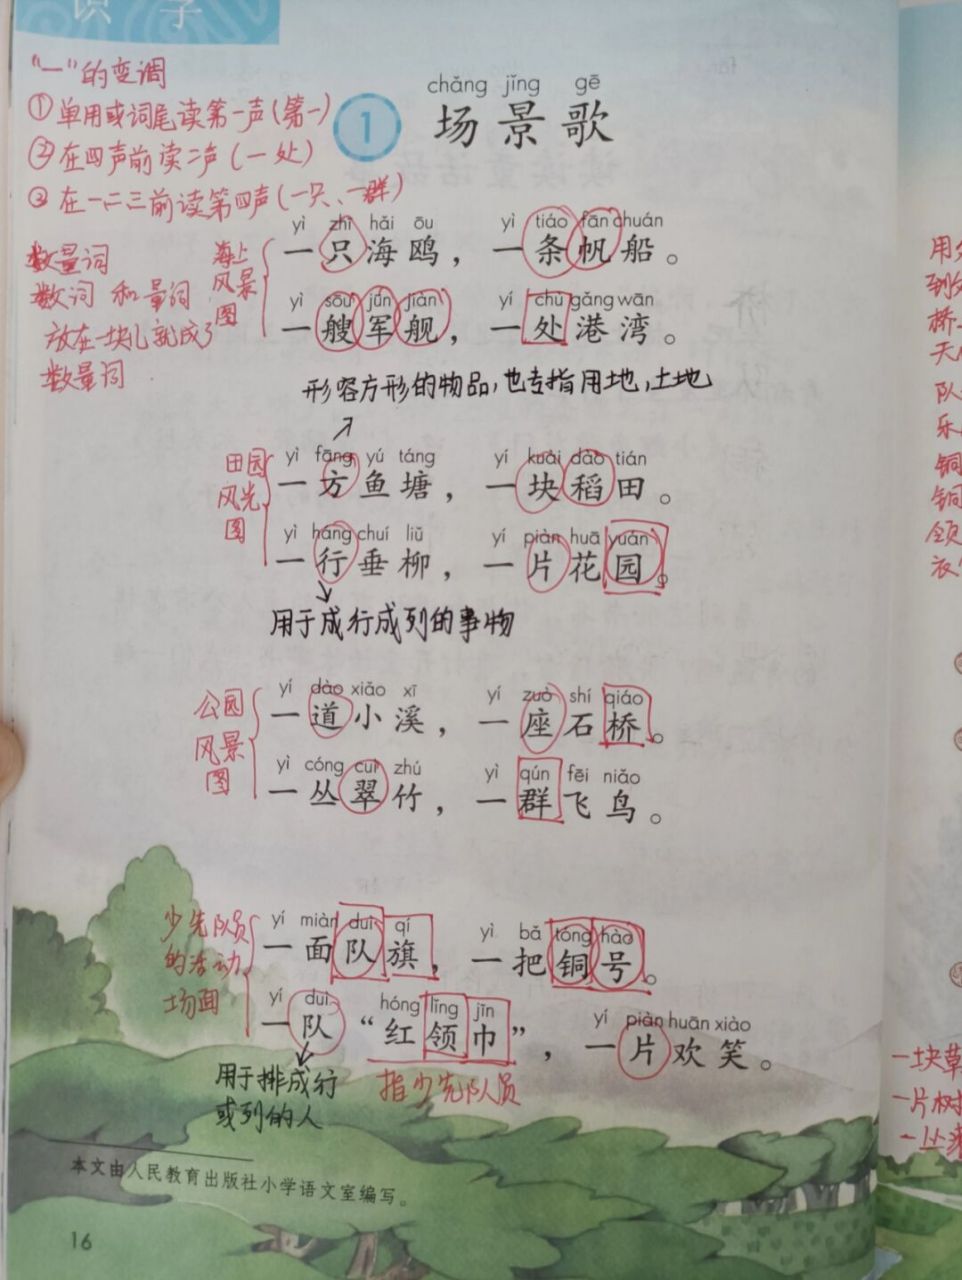 识字
"一"的变调
①单用或词尾读第一声(第一)
②在四声前读二声(一处)
③在一二三前读第四声(一只、一群)
chǎng jǐng gē
1 场景歌
数量词
数词 和量词
放在一块儿就成了
数量词
海上
风景
图
yì zhī hǎi ōu yì tiáo fān chuán
一只海鸥，一条帆船。
yì sōu jūn jiàn yí chù gǎng wān
一艘军舰，一处港湾。
形容方形的物品，也专指用地，土地
田园
风光
图
yì fāng yú táng yí kuài dào tián
一方鱼塘，一块稻田。
yì háng chuí liǔ yí piàn huā yuán
一行垂柳，一片花园。
用于成行成列的事物
公园
风景
图
yí dào xiǎo xī yí zuò shí qiáo
一道小溪，一座石桥。
yì cóng cuì zhú yì qún fēi niǎo
一丛翠竹，一群飞鸟。
少先队员
的活动
场面
yí miàn duì qí yì bǎ tóng hào
一面队旗，一把铜号。
yí duì hóng lǐng jīn yí piàn huān xiào
一队“红领巾”，一片欢笑。
用于排成行
或列的人
指少先队员
本文由人民教育出版社小学语文室编写。
16
到
桥
天
队
乐
铜
铜
领
一块草
一片树
一丛